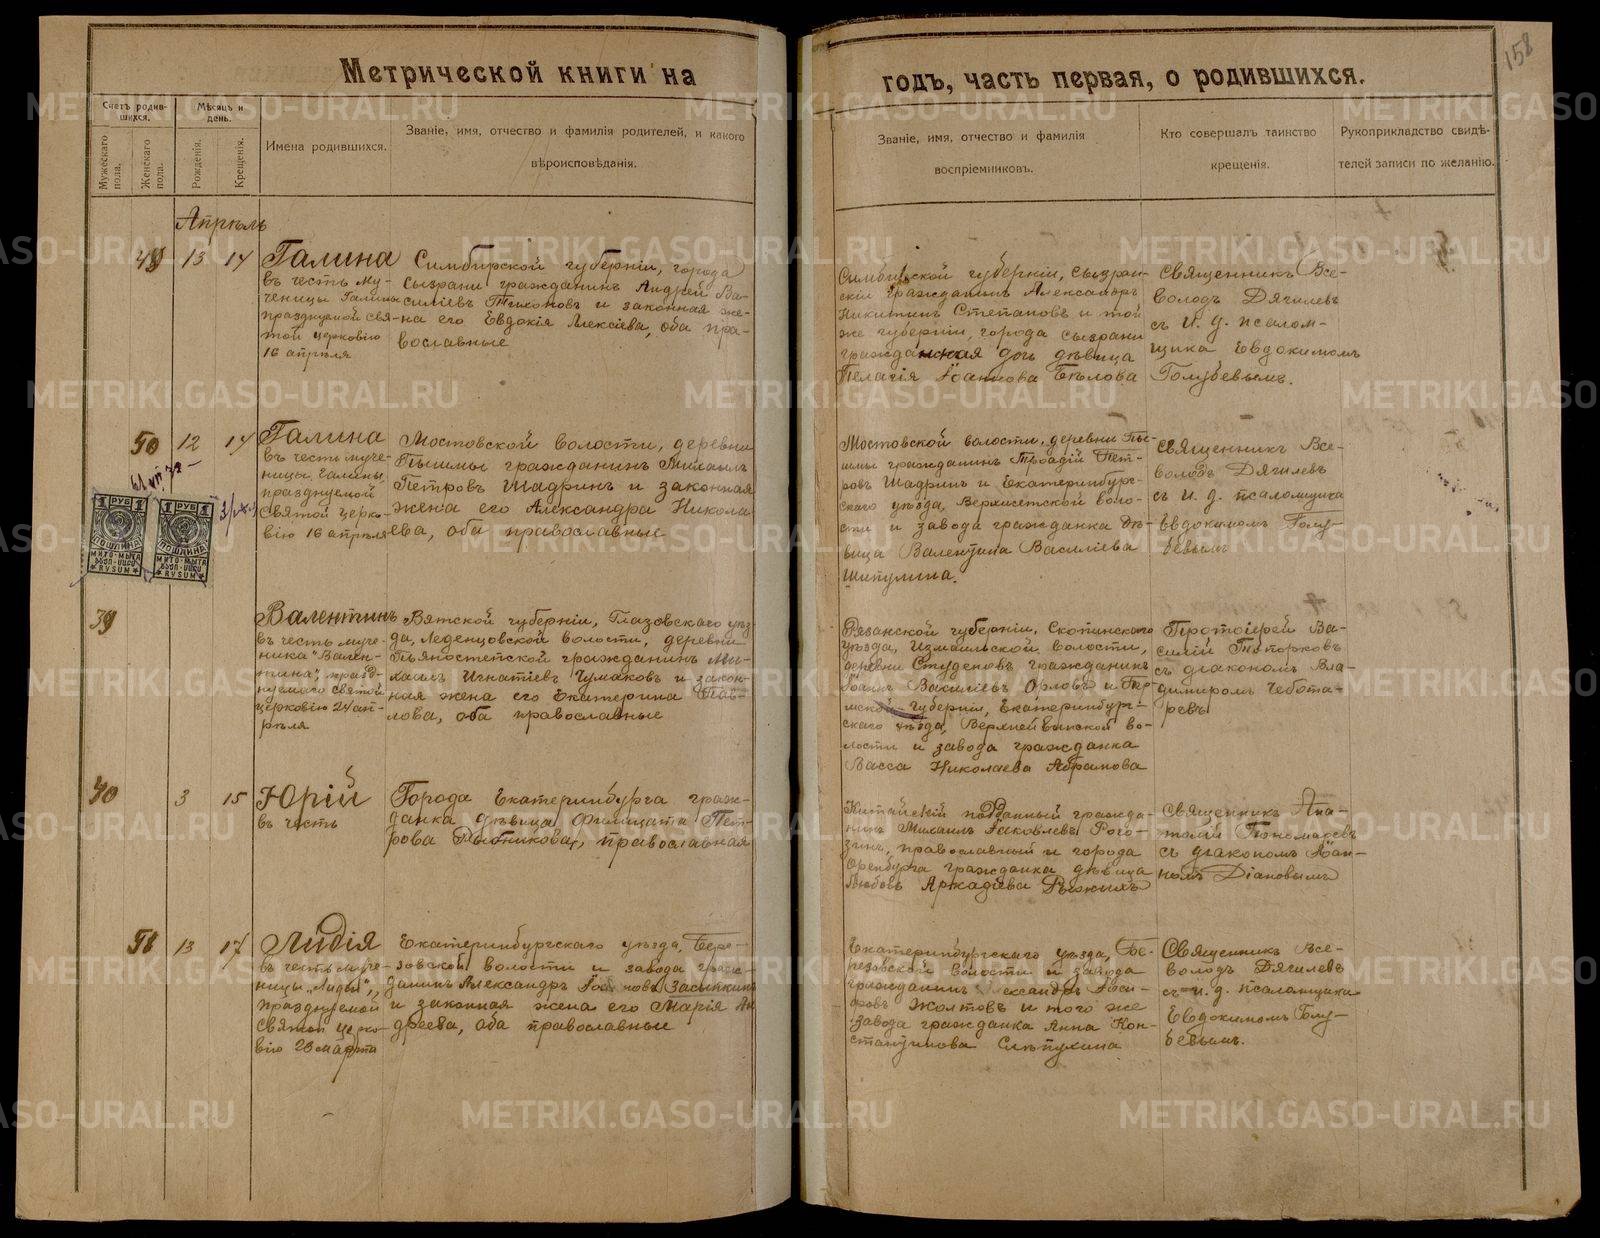 Метрической книги на
годъ, часть первая, о родившихся.
158
Счетъ родив-
шихся.
Мѣсяцъ и
день.
Мужескаго
пола.
Женскаго
пола.
Рожденія.
Крещенія.
Имена родившихся.
Званіе, имя, отчество и фамилія родителей, и какого
вѣроисповѣданія.
Званіе, имя, отчество и фамилія
воспріемниковъ.
Кто совершалъ таинство
крещенія.
Рукоприкладство свидѣ-
телей записи по желанію.
Апрѣль
49 13 14
Галина
въ честь му-
ченицы Галины
празднуемой свя-
той церковію
16 апрѣля
Симбирской губерніи, города
Сызрани гражданинъ Андрей Ва-
силіевъ Тихоновъ и законная же-
на его Евдокія Алексіева, оба пра-
вославные
Симбирской губерніи, Сызран-
скій гражданинъ Александръ
Никитинъ Степановъ и той
же губерніи, города Сызрани
гражданская дочь дѣвица
Пелагія Іоаннова Бѣлова
Священникъ Все-
володъ Дягилевъ
съ и. д. псалом-
щика Евдокимомъ
Голубевымъ.
50 12 14
Галина
въ честь муче-
ницы Галины,
празднуемой
святой церко-
вію 16 апрѣля
Мостовской волости, деревни
Пышмы гражданинъ Михаилъ
Петровъ Шадринъ и законная
жена его Александра Никола-
ева, оба православные
Мостовской волости, деревни Пы-
шмы гражданинъ Геннадій Пет-
ровъ Шадринъ и Екатеринбург-
скаго уѣзда, Верхисетской воло-
сти и завода гражданка дѣ-
вица Валентина Василіева
Шипулина.
Священникъ Все-
володъ Дягилевъ
съ и. д. псаломщика
Евдокимомъ Голу-
бевымъ
1 РУБ 1
ПОШЛИНА
1 РУБ 1
ПОШЛИНА
39
Валентинъ
въ честь муче-
ника "Вален-
тина", празд-
нуемаго святой
церковію 24 ап-
рѣля
Вятской губерніи, Глазовскаго уѣз-
да, Леденцовской волости, деревни
гражданинъ Ми-
хаилъ Игнатіевъ Чумаковъ и закон-
ная жена его Екатерина Пав-
лова, оба православные
Рязанской губерніи, Скопинскаго
уѣзда, Измаильской волости,
деревни Студеновъ гражданинъ
Іоаннъ Василіевъ Орловъ и Пер-
мской губерніи, Екатеринбург-
скаго уѣзда, во-
лости и завода гражданка
Васса Николаева Абрамова
Протоіерей Ва-
силій Топорковъ
съ діакономъ Вла-
димиромъ Чебота-
ревъ
40 3 15
Юрій
въ честь
Города Екатеринбурга граж-
данка дѣвица Филицата Пет-
рова православная
Китайскій подданный гражда-
нинъ Михаилъ Іаковлевъ Рого-
зинъ, православный и города
Оренбурга гражданка дѣвица
Любовь Аркадіева Рыжихъ
Священникъ Ана-
толій Пономаревъ
съ діакономъ Іоан-
номъ Діановымъ
51 13 17
Лидія
въ честь муче-
ницы "Лидіи",
празднуемой
святой церко-
вію 23 марта
Екатеринбургскаго уѣзда, Бере-
зовской волости и завода граж-
данинъ Александръ Іоанновъ Засыпкинъ
и законная жена его Марія Ан-
дреева, оба православные
Екатеринбургскаго уѣзда, Бе-
резовской волости и завода
гражданинъ Александръ
Жолтовъ и того же
завода гражданка Анна Кон-
стантинова Слѣпухина
Священникъ Все-
володъ Дягилевъ
съ и. д. псаломщика
Евдокимомъ Голу-
бевымъ.
METRIKI.GASO-URAL.RU